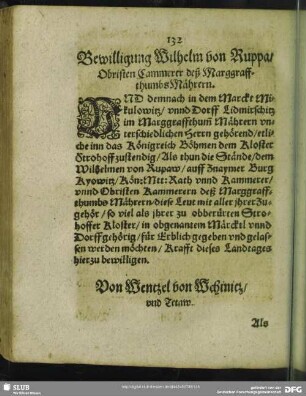 132
Bewilligung Wilhelm von Ruppa/
Obristen Cammerer deß Marggraff-
thumbs Mährern.
UND demnach in dem Marckt Mi-
kulowitz/ vnnd Dorff Lidmirschitz
im Marggraffthumb Mährern vn-
terschiedlichen Herrn gehörend/ etli-
che inn das Königreich Böhmen dem Kloster
Strohoff zustendig/ Als thun die Stände/ dem
Wilhelmen von Rupaw/ auff Znaymer Burg
Kön: Mtt: Rath vnnd Kammerer/
vnnd Obristen Kammerern deß Marggraff-
thumbs Mährern/ diese Leut mit aller jhrer Zu-
gehör/ so viel als jhrer zu obberürten Stro-
hoffer Kloster/ in obgenantem Märcktl vnnd
Dorff gehörig/ für Erblich gegeben vnd gelas-
sen werden möchten/ Krafft dieses Landtages
hierzu bewilligen.
Von Wentzel von Wchinitz/
vnd Tetaw.
Als
SLUB
DFG